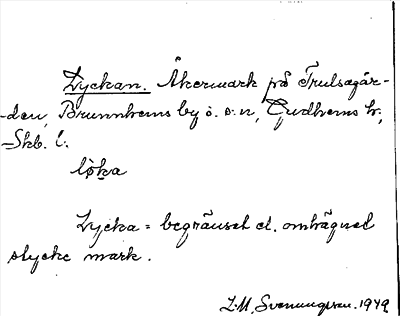 Lyckan. Åkermark på Trulsagår-
-den, Brunnhems by o. s:n, Gudhems h.,
Skb. l.
löka
Lycka = begränset el. omhägnad
stycke mark.
L.M. Svenungsson. 1949